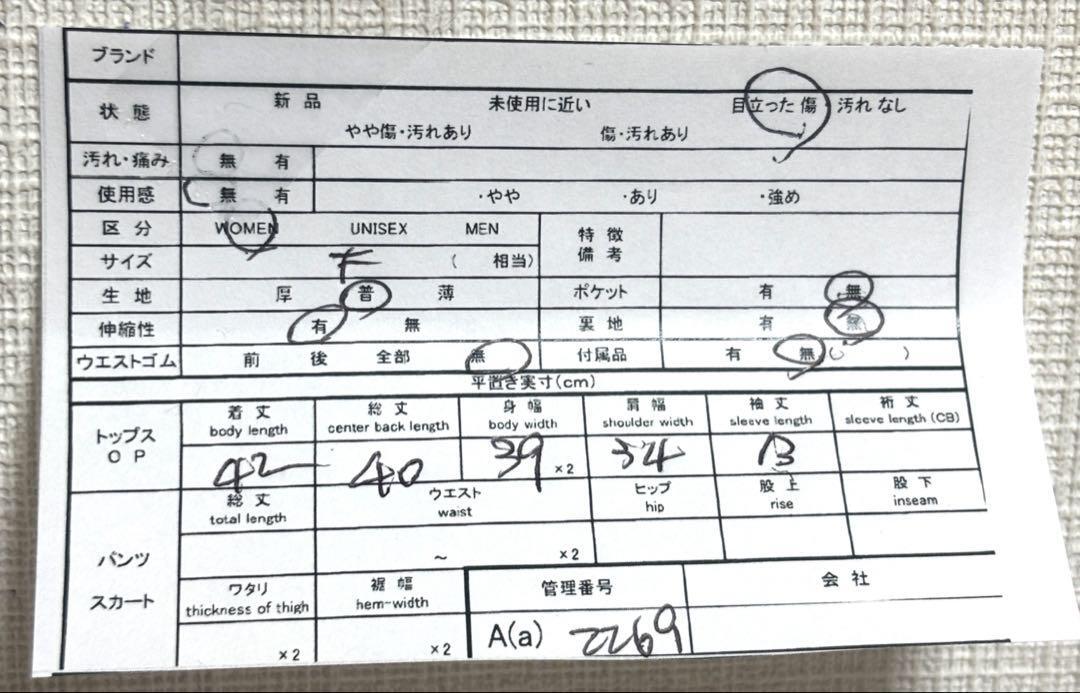 ブランド
状態 新品 未使用に近い 目立った傷 汚れなし
やや傷・汚れあり 傷・汚れあり
汚れ・痛み 無 有
使用感 無 有 ・やや ・あり ・強め
区分 WOMEN UNISEX MEN 特徴
備考
サイズ ( 相当)
生地 厚 普 薄 ポケット 有 無
伸縮性 有 無 裏地 有 無
ウエストゴム 前 後 全部 無 付属品 有 無 ( )
平置き実寸(cm)
トップス
OP
着丈 総丈 身幅 肩幅 袖丈 裄丈
body length center back length body width shoulder width sleeve length sleeve length (CB)
42 40 39 ×2 34 13
パンツ
スカート
総丈 ウエスト ヒップ 股上 股下
total length waist hip rise inseam
～ ×2
ワタリ 裾幅 管理番号 会社
thickness of thigh hem-width
×2 ×2 A(a) 2269